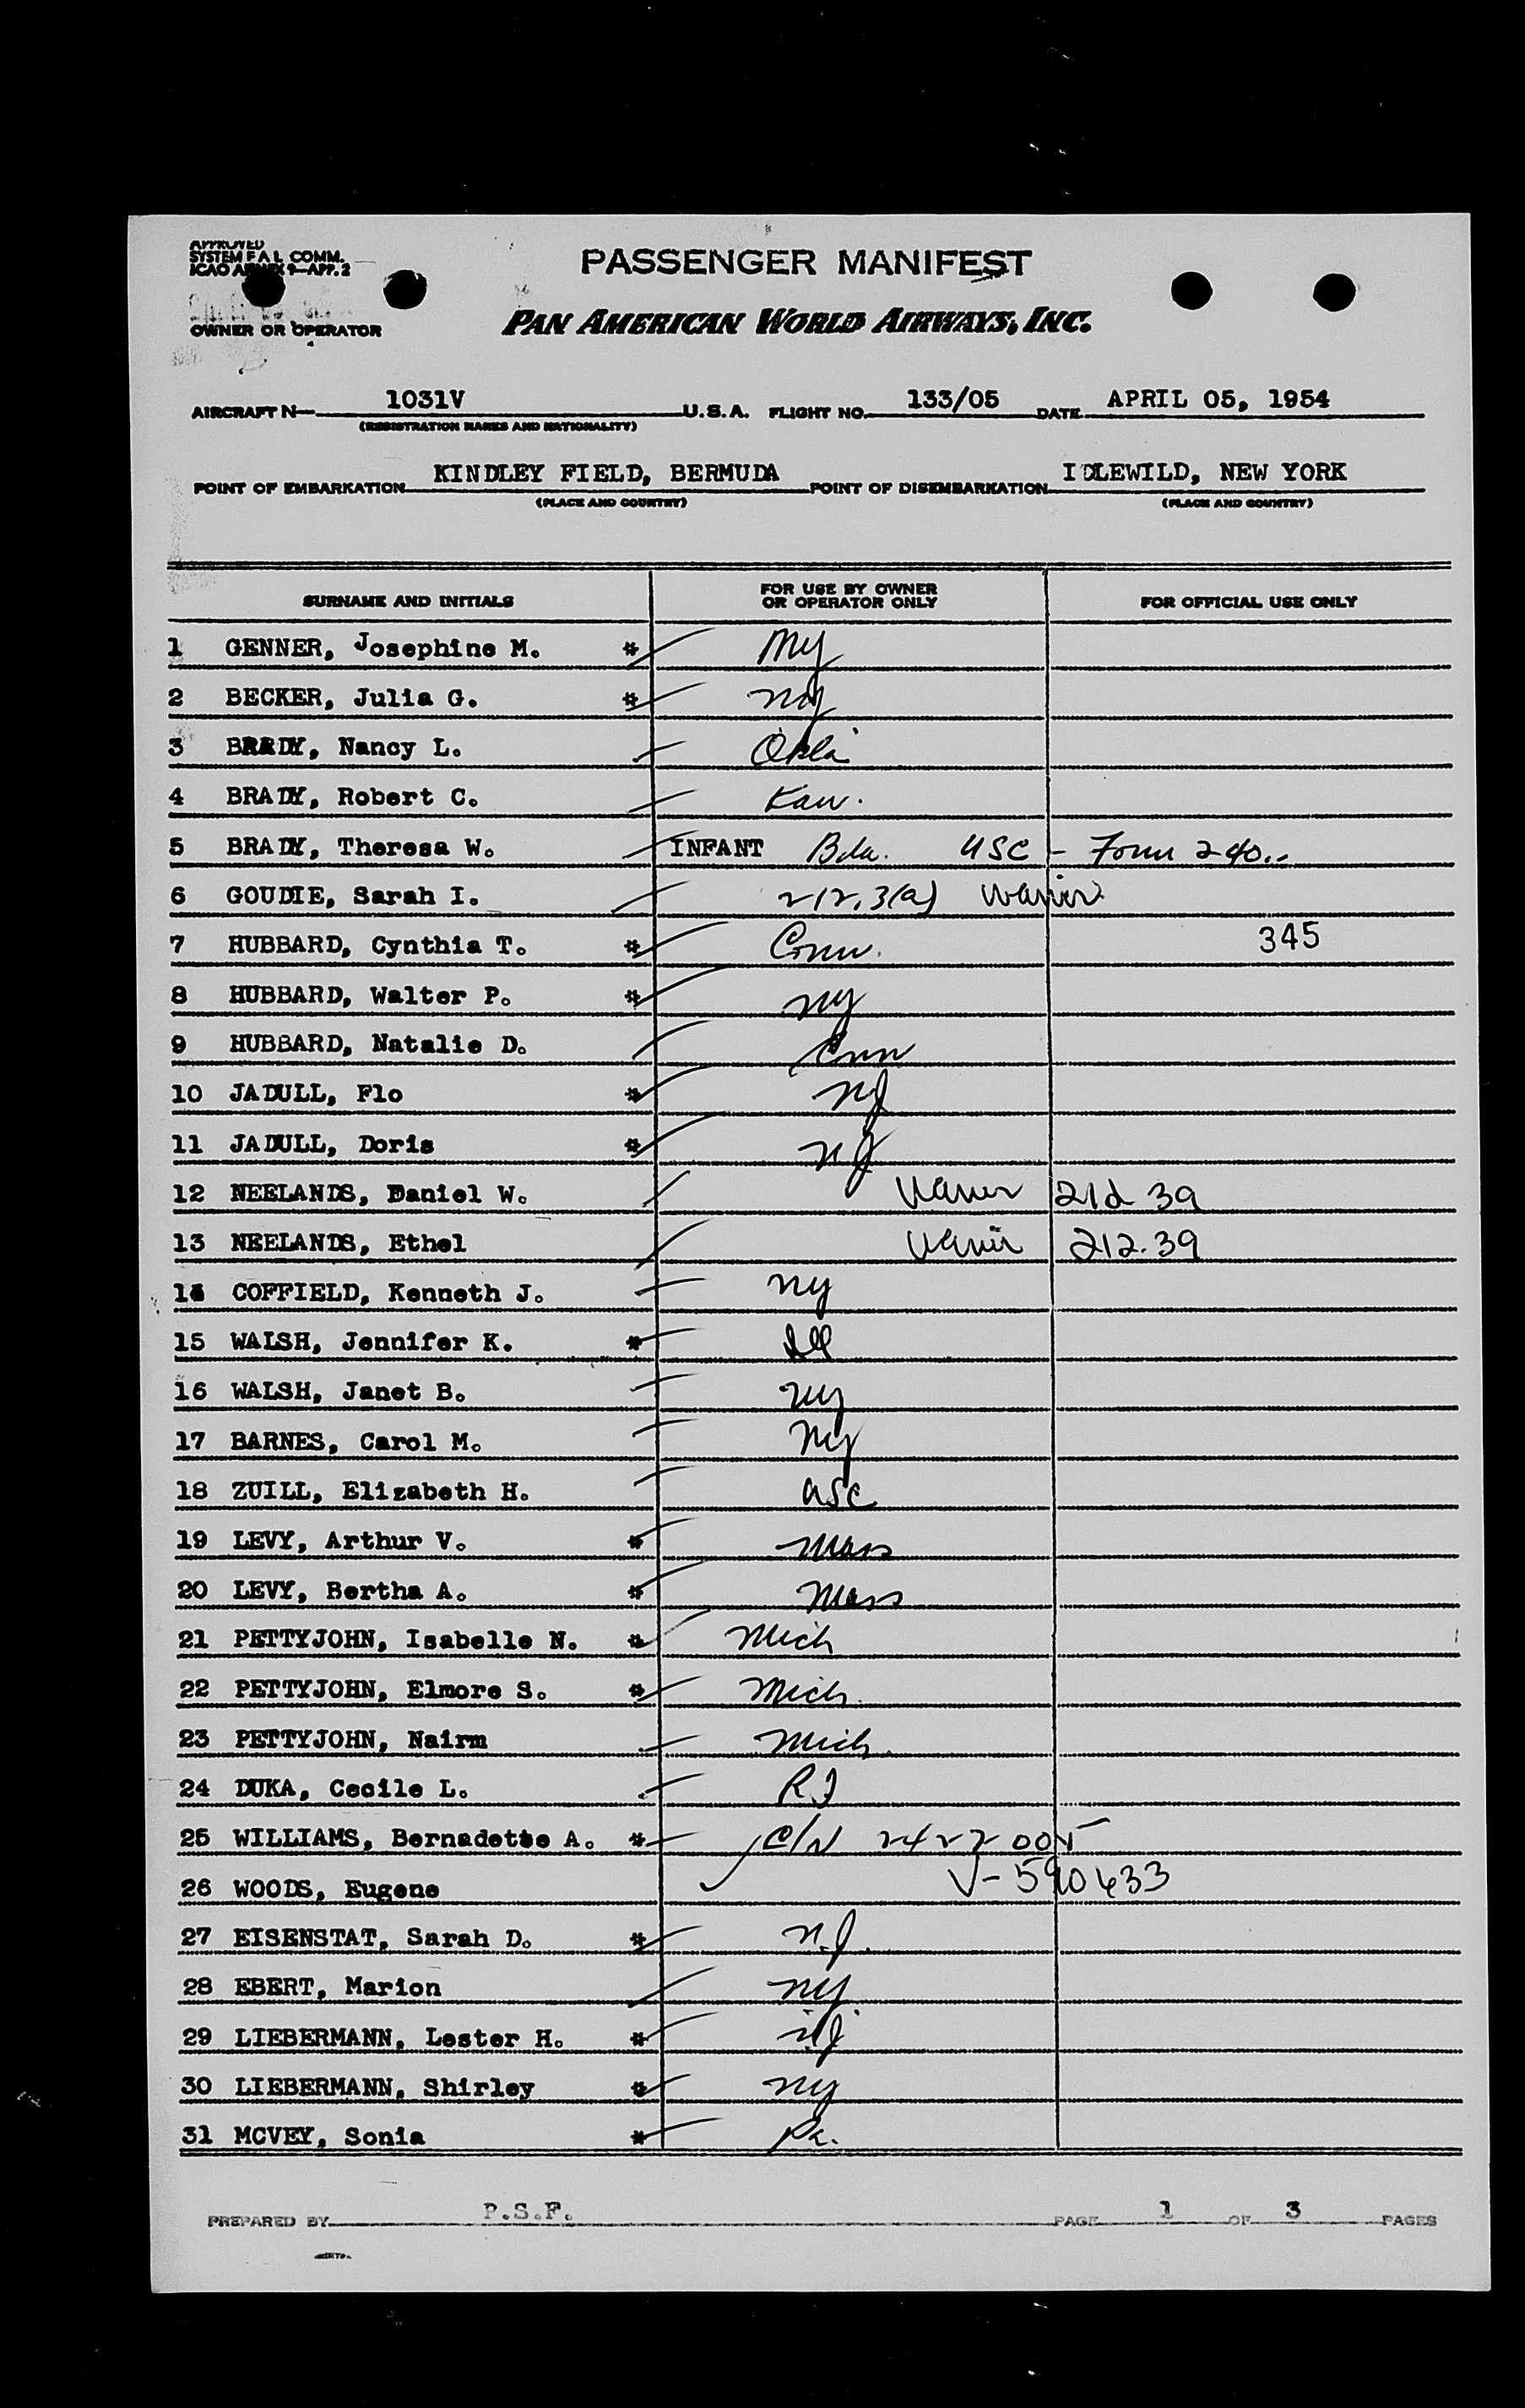 APPROVED
SYSTEM F A L COMM.
ICAO ANNEX 9—APP. 2
PASSENGER MANIFEST
OWNER OR OPERATOR
PAN AMERICAN WORLD AIRWAYS, INC.
AIRCRAFT N— 1031V U.S.A. FLIGHT NO. 133/05 DATE APRIL 05, 1954
(REGISTRATION MARKS AND NATIONALITY)
POINT OF EMBARKATION KINDLEY FIELD, BERMUDA POINT OF DISEMBARKATION IDLEWILD, NEW YORK
(PLACE AND COUNTRY) (PLACE AND COUNTRY)
SURNAME AND INITIALS FOR USE BY OWNER OR OPERATOR ONLY FOR OFFICIAL USE ONLY
1 GENNER, Josephine M. * NY
2 BECKER, Julia G. * NY
3 BRADY, Nancy L. Okla
4 BRADY, Robert C. Kan.
5 BRADY, Theresa W. INFANT Bda. USC - Form 240
6 GOUDIE, Sarah I. 212.3(a) Waiver
7 HUBBARD, Cynthia T. * Conn. 345
8 HUBBARD, Walter P. * NY
9 HUBBARD, Natalie D. Conn
10 JADULL, Flo * NJ
11 JADULL, Doris * NJ
12 NEELANDS, Daniel W. Waiver 212 3a
13 NEELANDS, Ethel Waiver 212.3a
14 COFFIELD, Kenneth J. NY
15 WALSH, Jennifer K. * Ill
16 WALSH, Janet B. NY
17 BARNES, Carol M. NY
18 ZUILL, Elizabeth H. USC
19 LEVY, Arthur V. * Mass
20 LEVY, Bertha A. * Mass
21 PETTYJOHN, Isabelle N. * Mich
22 PETTYJOHN, Elmore S. * Mich.
23 PETTYJOHN, Nairm Mich.
24 DUKA, Cecile L. RI
25 WILLIAMS, Bernadette A. * C/N 2422005
26 WOODS, Eugene V-590633
27 EISENSTAT, Sarah D. * N.J.
28 EBERT, Marion NY
29 LIEBERMANN, Lester H. * NJ
30 LIEBERMANN, Shirley * NY
31 MCVEY, Sonia * Pa.
PREPARED BY P.S.F. PAGE 1 OF 3 PAGES